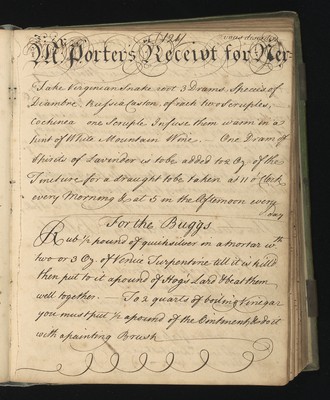 124
vous disorders
Mr. Porters Receipt for Ner-
Take Virginean Snake root 3 Drams. Species of
Diambre, Russia Castor, of each two Scruples,
Cochinea one Scruple Infuse them warm in a
pint of White Mountain Wine. One Dram of
Spirits of Lavender is to be added to 2 Oz of the
Tincture for a draught to be taken at 11 o'Clock
every Morning & at 5 in the Afternoon every
day
For the Buggs
Rub ½ pound of quicksilver in a mortar wth
two or 3 Oz of Venice Turpentine till it is kill'd
then put to it a pound of Hogs Lard & beat them
well together. To 2 quarts of boiling Vinegar
you must put ½ a pound of the Ointment & do it
with a painting Brush